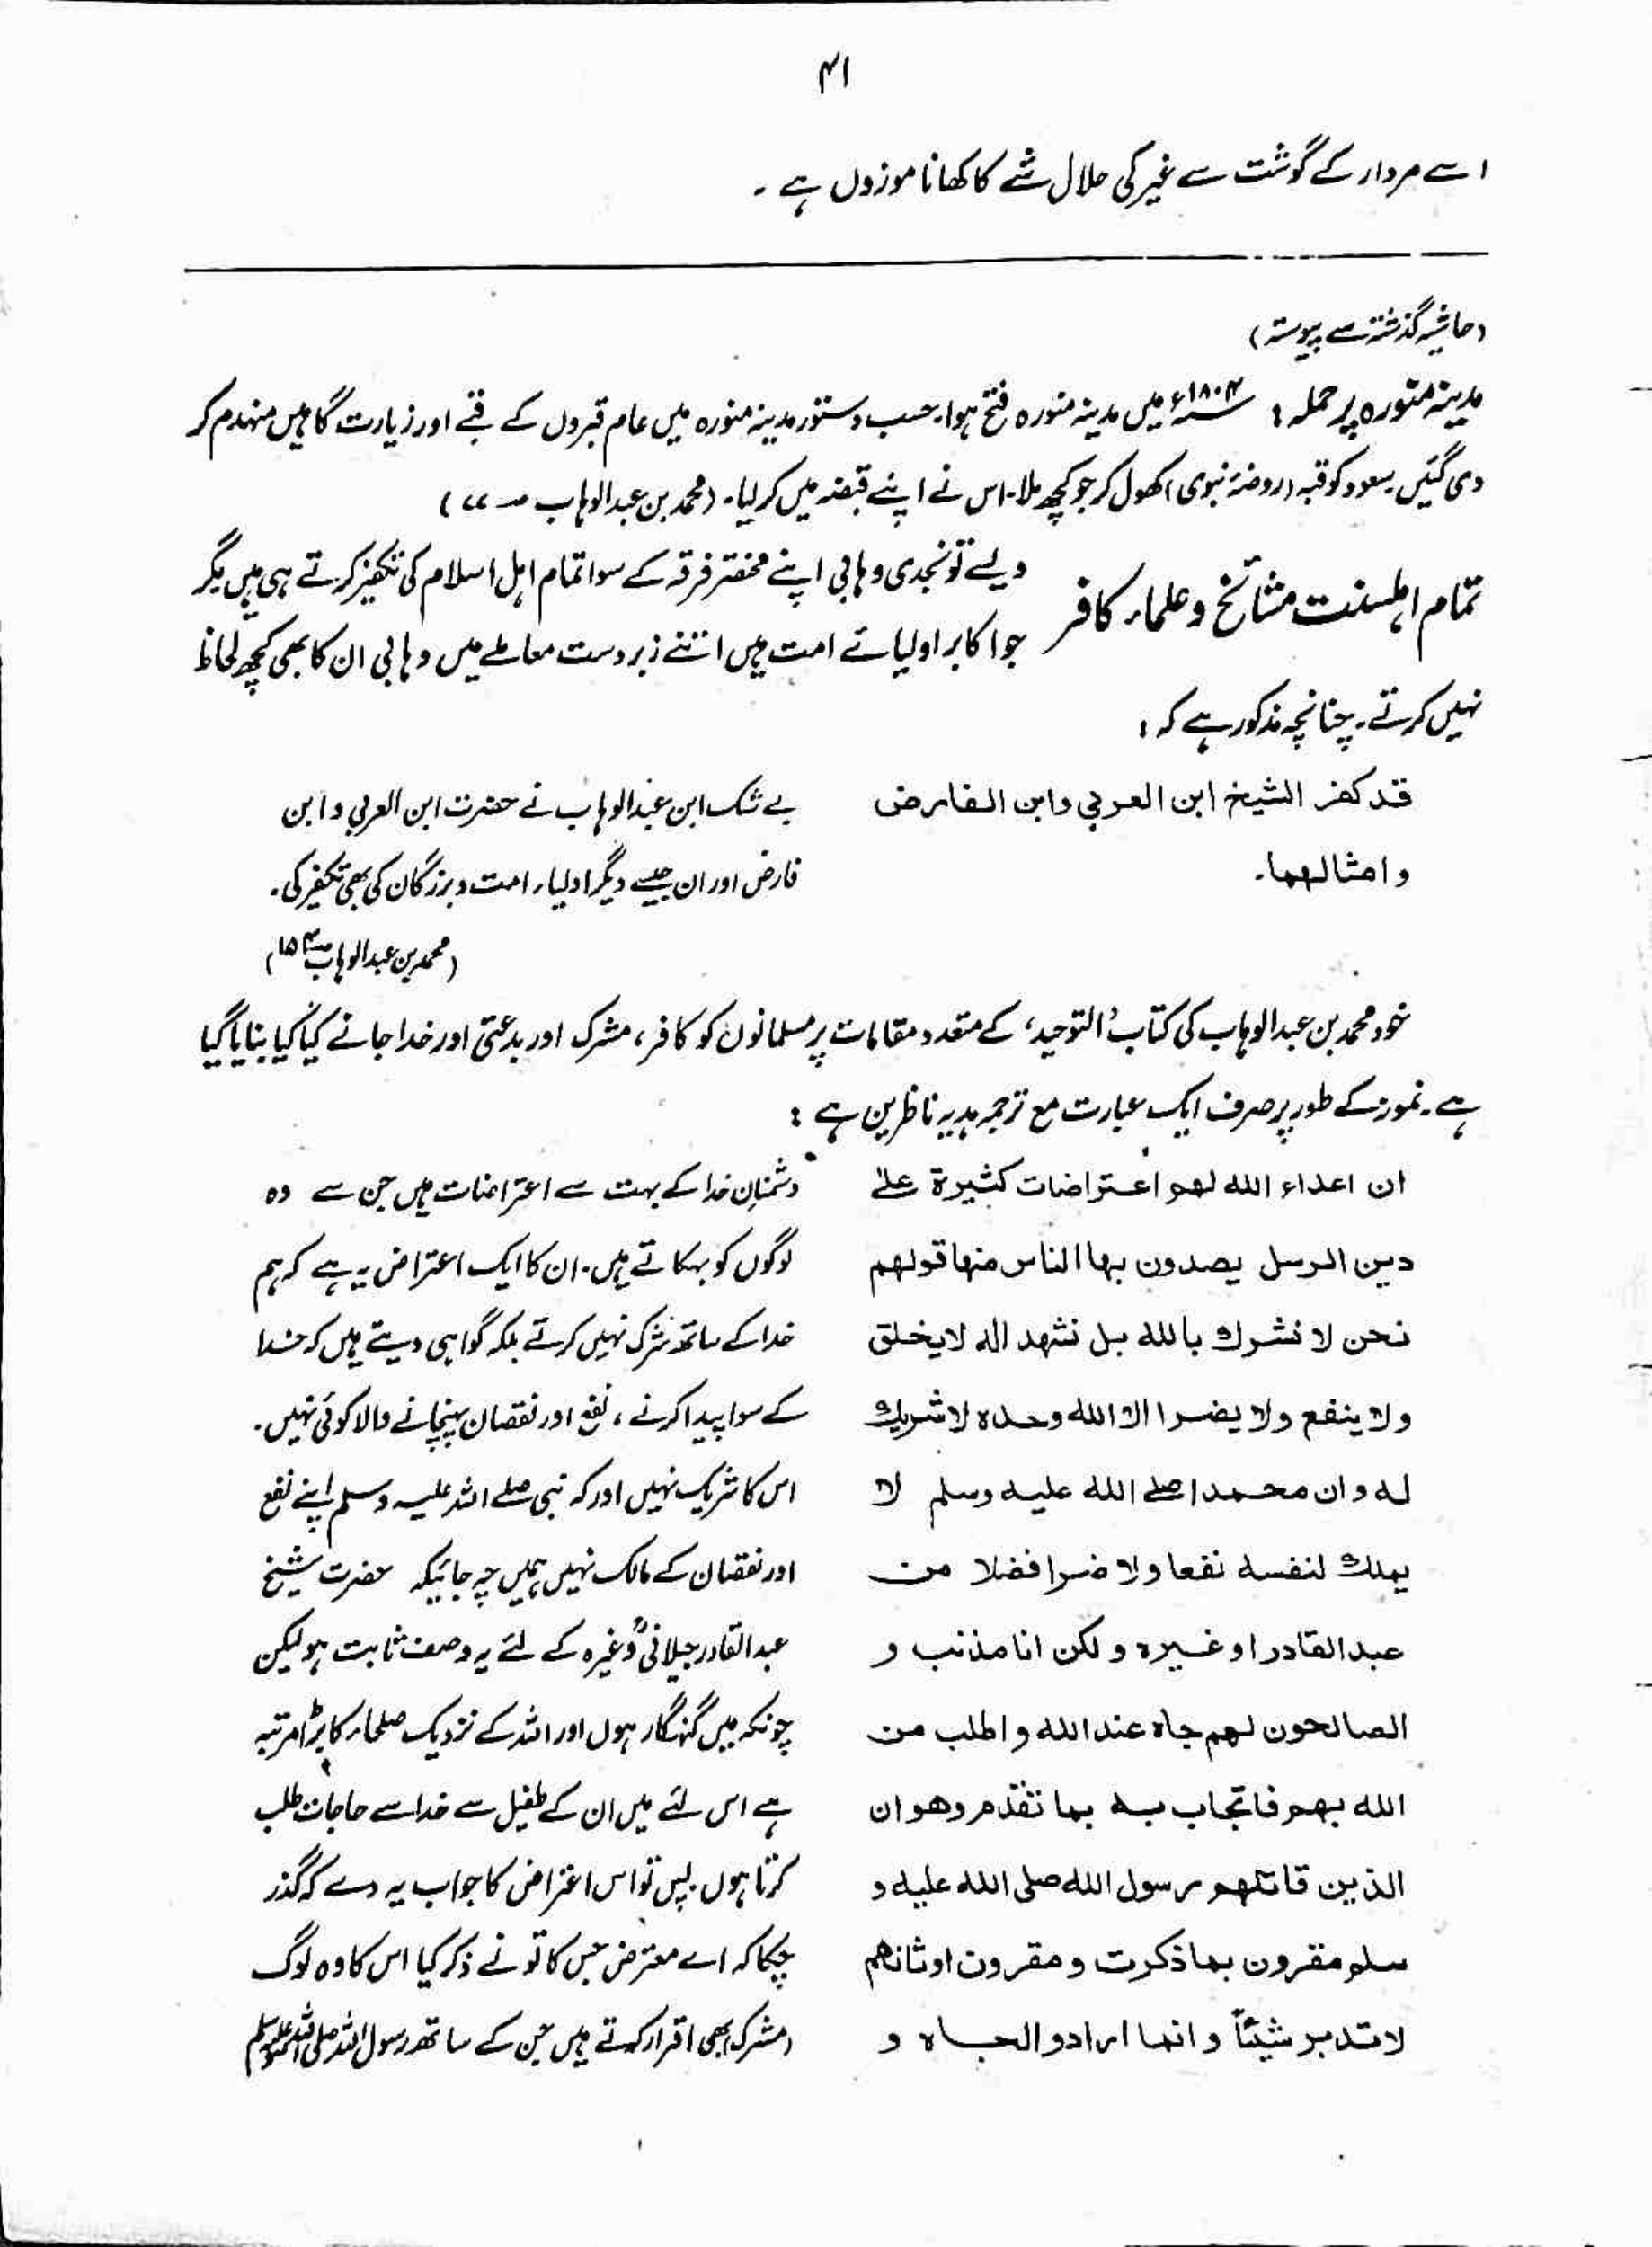 ۴۱
اسے مردار کے گوشت سے غیر کی حلال شے کا کھانا موزوں ہے ۔
(حاشیہ گذشتہ سے پیوستہ)
مدینہ منورہ پر حملہ : ۱۸۰۴ء میں مدینہ منورہ فتح ہوا۔ حسب دستور مدینہ منورہ میں عام قبروں کے قبے اور زیارت گاہیں منہدم کر
دی گئیں۔ سعود کو قبہ (روضۂ نبوی) کھول کر جو کچھ ملا۔ اس نے اپنے قبضہ میں کر لیا۔ (محمد بن عبدالوہاب صـ ۷۷)
تمام اہلسنت مشائخ و علماء کافر
ویسے تو نجدی وہابی اپنے مختصر فرقہ کے سوا تمام اہل اسلام کی تکفیر کرتے ہی ہیں مگر
جو اکابر اولیائے امت ہیں اتنے زبردست معاملے میں وہابی ان کا بھی کچھ لحاظ
نہیں کرتے۔ چنانچہ مذکور ہے کہ :
قد كفر الشيخ ابن العربي وابن الفارض
وامثالهما۔
بے شک ابن عبدالوہاب نے حضرت ابن العربی و ابن
فارض اور ان جیسے دیگر اولیاء امت و بزرگان کی بھی تکفیر کی۔
(محمد بن عبدالوہاب صـ ۱۵۴)
خود محمد بن عبدالوہاب کی کتاب "التوحید" کے متعدد مقامات پر مسلمانوں کو کافر، مشرک اور بدعتی اور خدا جانے کیا کیا بنایا گیا
ہے۔ نمونہ کے طور پر صرف ایک عبارت مع ترجمہ ہدیہ ناظرین ہے :
ان اعداء الله لهم اعتراضات كثيرة على
دين الرسل يصدون بها الناس منها قولهم
نحن لا نشرك بالله بل نشهد انه لا يخلق
ولا ينفع ولا يضر الا الله وحده لا شريك
له وان محمدا صلے الله عليه وسلم لا
يملك لنفسه نفعا ولا ضرا فضلا من
عبدالقادر او غيره ولكن انا مذنب و
الصالحون لهم جاه عند الله واطلب من
الله بهم فاتجاب به بما تقدم وهو ان
الذين قاتلهم رسول الله صلى الله عليه و
سلم مقرون بما ذكرت و مقرون اوثانهم
لا تدبر شيئاً وانما ارادوا الجاه و
دشمنانِ خدا کے بہت سے اعتراضات ہیں جن سے وہ
لوگوں کو بہکاتے ہیں۔ ان کا ایک اعتراض یہ ہے کہ ہم
خدا کے ساتھ شرک نہیں کرتے بلکہ گواہی دیتے ہیں کہ خدا
کے سوا پیدا کرنے، نفع اور نقصان پہنچانے والا کوئی نہیں۔
اس کا شریک نہیں اور کہ نبی صلے اللہ علیہ وسلم اپنے نفع
اور نقصان کے مالک نہیں ہیں چہ جائیکہ حضرت شیخ
عبدالقادر جیلانیؒ وغیرہ کے لئے یہ وصف ثابت ہو لیکن
چونکہ میں گنہگار ہوں اور اللہ کے نزدیک صلحاء کا بڑا مرتبہ
ہے اس لئے میں ان کے طفیل سے خدا سے حاجات طلب
کرتا ہوں۔ پس تو اس اعتراض کا جواب یہ دے کہ گذر
چکا کہ اے معترض جس کا تو نے ذکر کیا اس کا وہ لوگ
(مشرک) بھی اقرار کرتے ہیں جن کے ساتھ رسول اللہ صلی اللہ علیہ وسلم